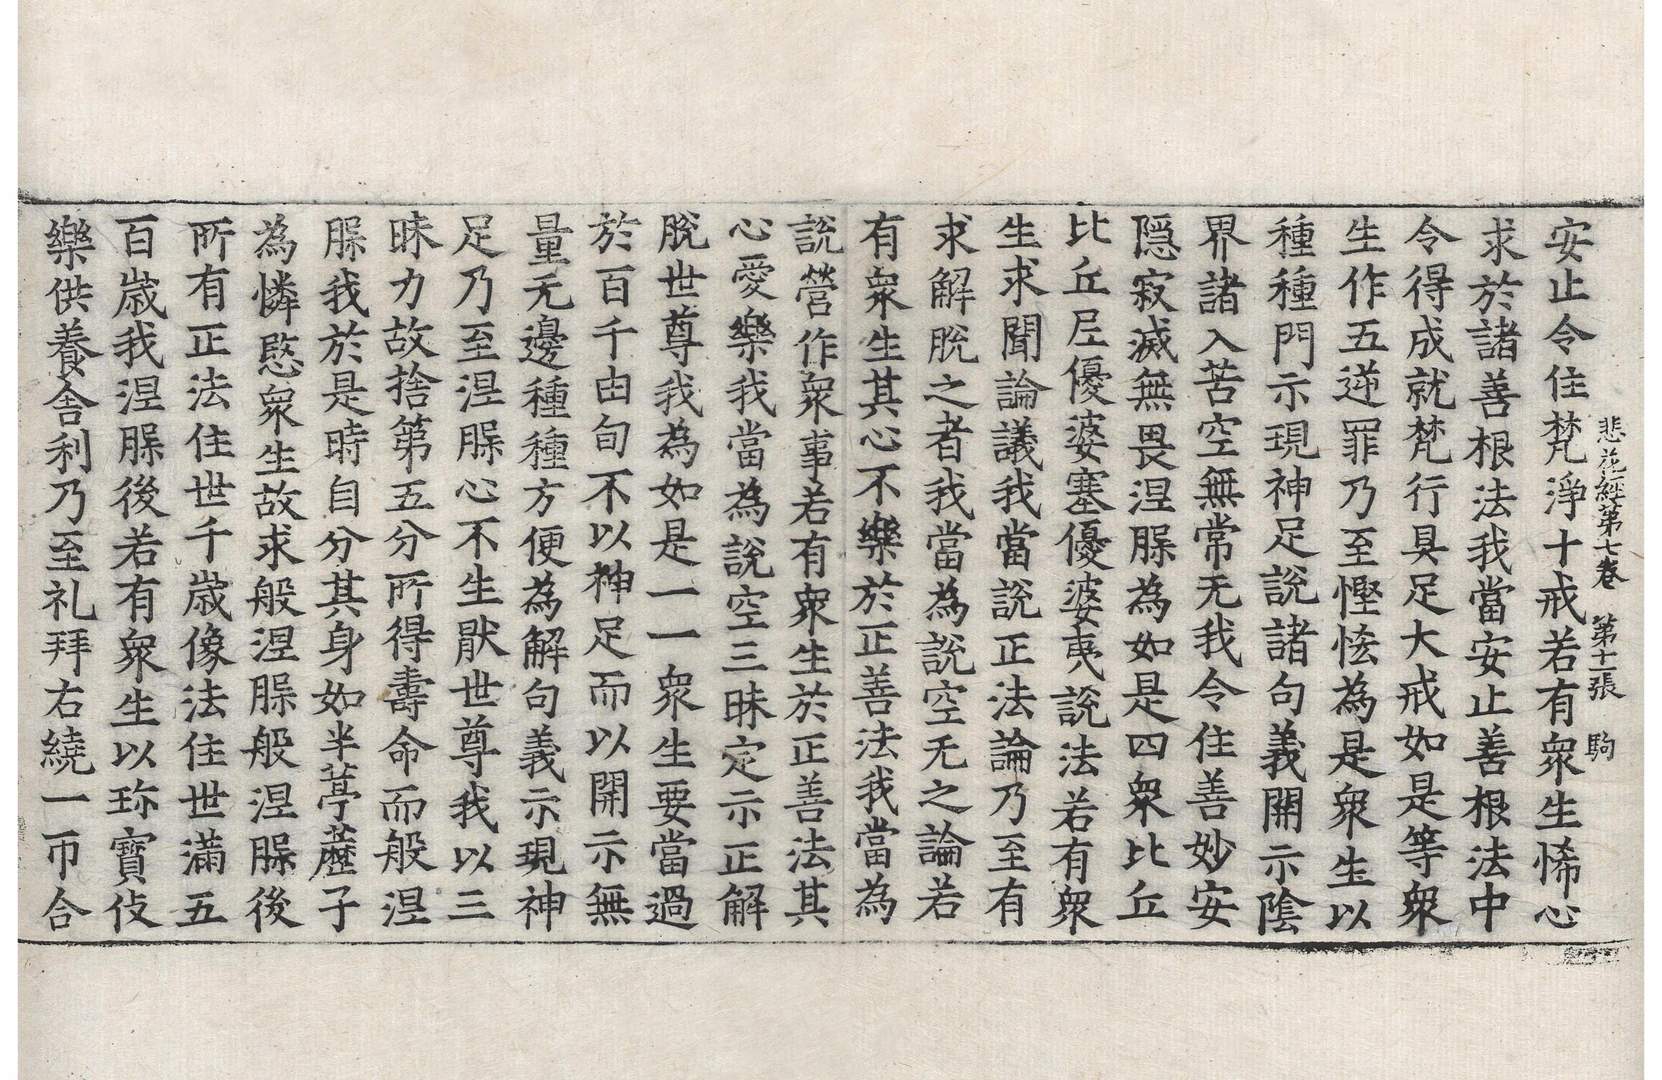 悲花經第七卷　第十一張　駒
安止令住梵淨十戒若有衆生悕心
求於諸善根法我當安止善根法中
令得成就梵行具足大戒如是等衆
生作五逆罪乃至慳悋為是衆生以
種種門示現神足說諸句義開示陰
界諸入苦空無常无我令住善妙安
隱寂滅無畏涅脲為如是四衆比丘
比丘尼優婆塞優婆夷說法若有衆
生求聞論議我當說正法論乃至有
求解脫之者我當為說空无之論若
有衆生其心不樂於正善法我當為
說營作衆事若有衆生於正善法其
心愛樂我當為說空三昧定示正解
脫世尊我為如是一一衆生要當過
於百千由旬不以神足而以開示無
量无邊種種方便為解句義示現神
足乃至涅脲心不生猒世尊我以三
昧力故捨第五分所得壽命而般涅
脲我於是時自分其身如半葶藶子
為憐愍衆生故求般涅脲般涅脲後
所有正法住世千歲像法住世滿五
百歲我涅脲後若有衆生以珎寶伎
樂供養舍利乃至礼拜右繞一帀合